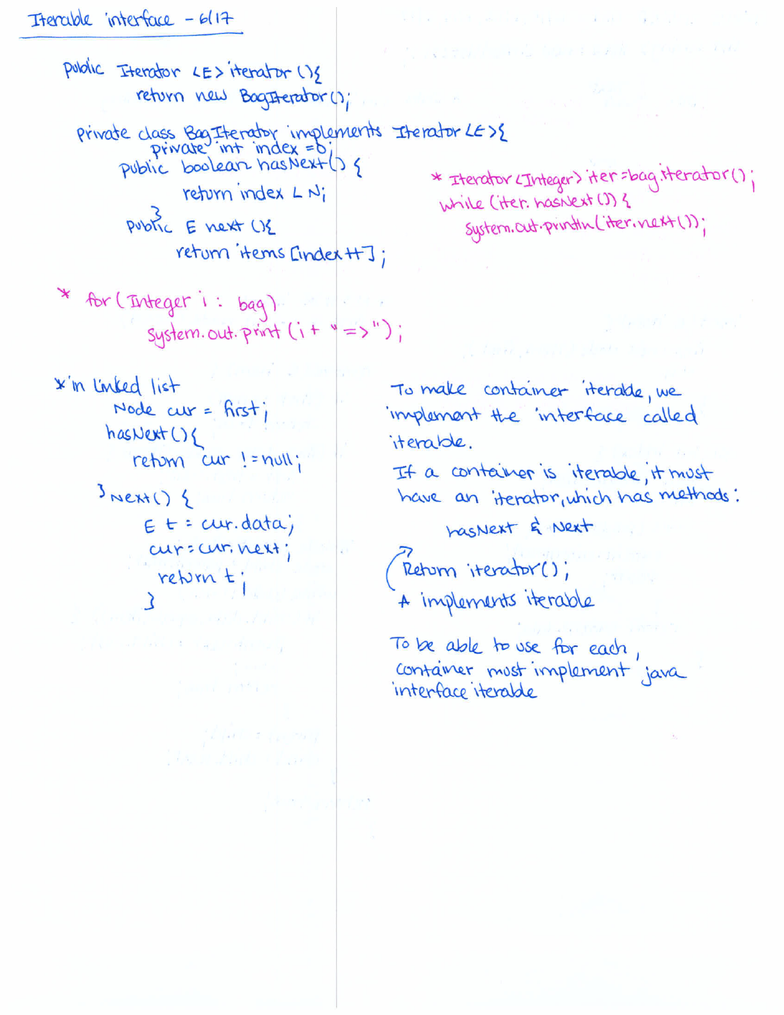 Iterable interface - 6/17
public Iterator <E> iterator(){
return new BagIterator();
private class BagIterator implements Iterator<E>{
private int index = 0;
public boolean hasNext() {
return index < N;
}
public E next (){
return items [index++];
* Iterator<Integer> iter = bag.iterator();
while (iter.hasNext()) {
System.out.println(iter.next());
* for (Integer i : bag)
System.out.print (i + " => ");
* in linked list
Node cur = first;
hasNext(){
return cur != null;
} Next() {
E t = cur.data;
cur = cur.next;
return t;
}
To make container iterable, we
implement the interface called
iterable.
If a container is iterable, it must
have an iterator, which has methods:
hasNext & Next
Return iterator();
A implements iterable
To be able to use for each,
container must implement java
interface iterable